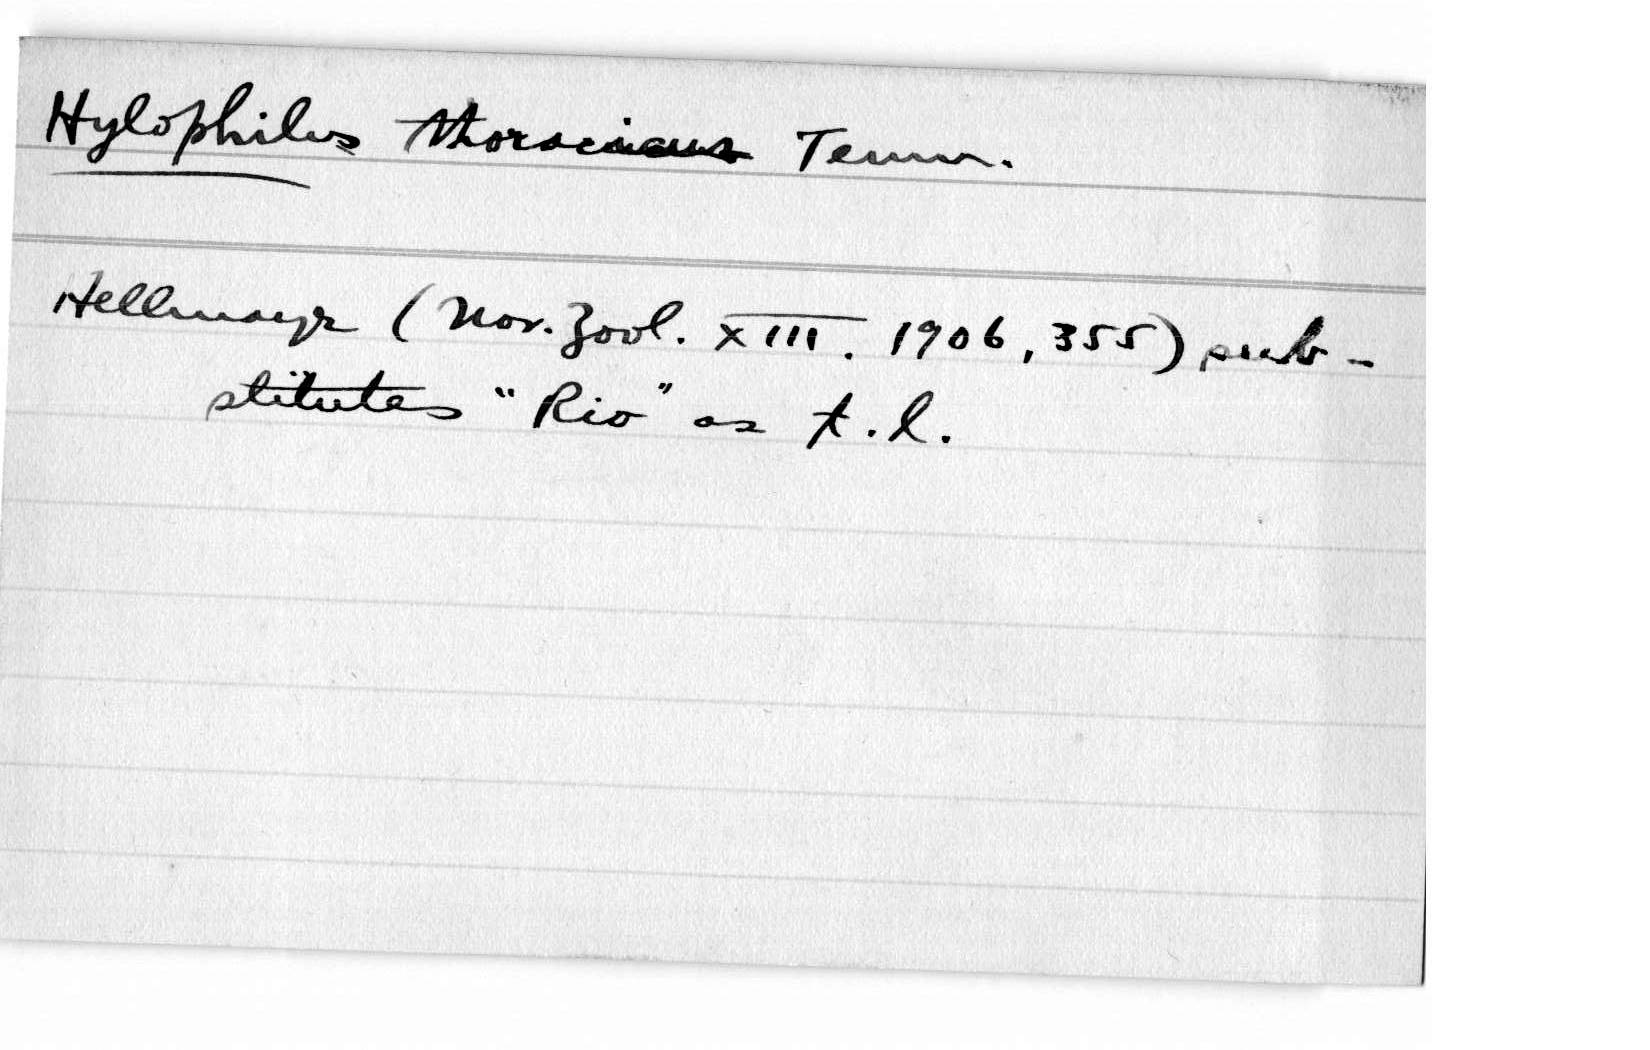 Hylophilus thoracicus Temm.
Hellmayr (Nov. Zool. XIII. 1906, 355) sub-
stitutes "Rio" as t.l.